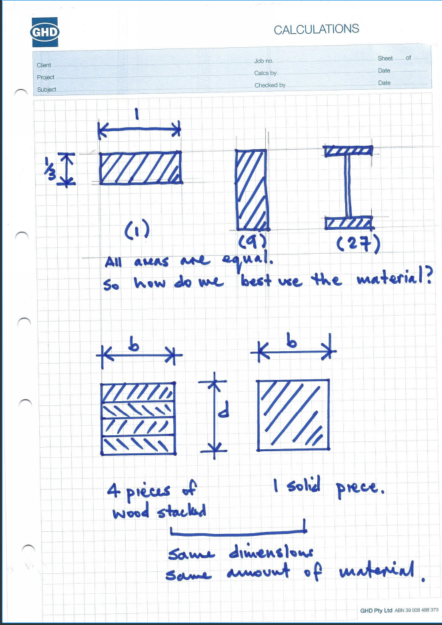 GHD
CALCULATIONS
Client
Job no.
Sheet of
Project
Calcs by
Date
Subject
Checked by
Date
1
1/3
(1)
(9)
(27)
All areas are equal.
So how do we best use the material?
b
b
d
4 pieces of
wood stacked
1 solid piece.
Same dimensions
Same amount of material.
GHD Pty Ltd ABN 39 008 488 373